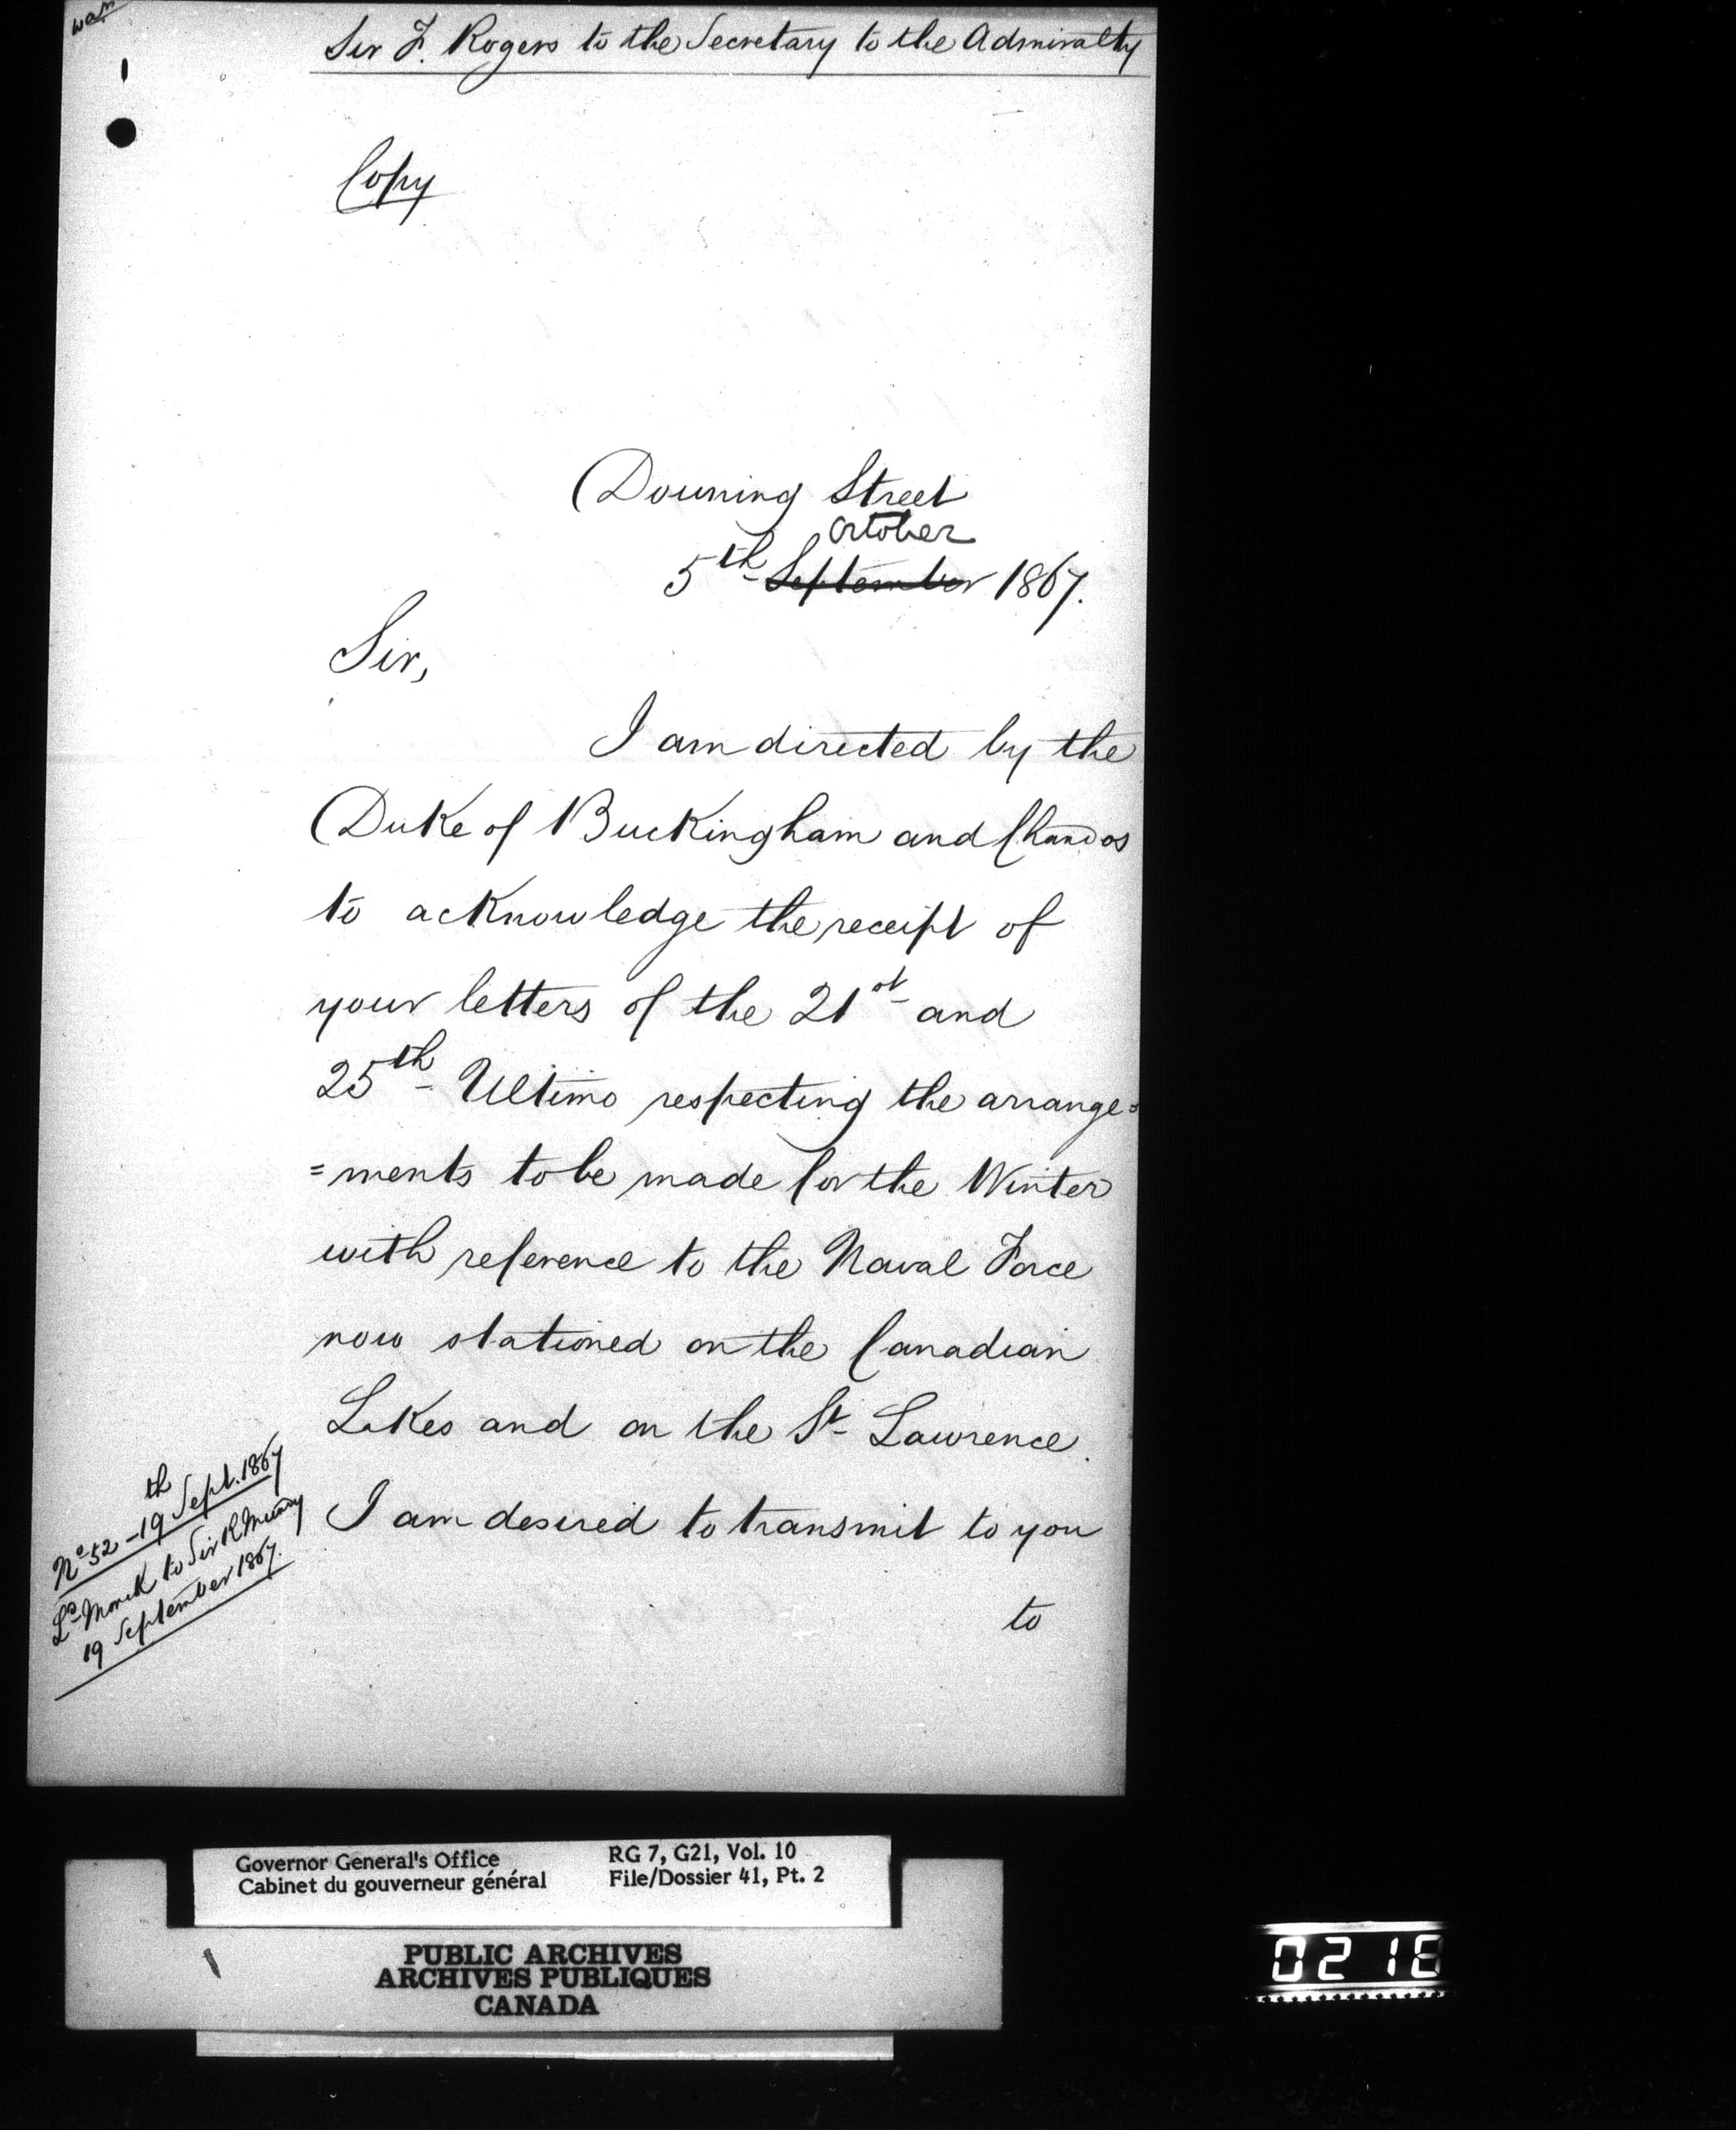 Sir F. Rogers to the Secretary to the Admiralty
Copy
Downing Street
October
5th September 1867.
Sir,
I am directed by the
Duke of Buckingham and Chandos
to acknowledge the receipt of
your letters of the 21st and
25th Ultimo respecting the arrange=
=ments to be made for the Winter
with reference to the Naval Force
now stationed on the Canadian
Lakes and on the St Lawrence.
I am desired to transmit to you
to
No 52 - 19th Sept. 1867
Ld Monck to Sir R Mundy
19 September 1867.
Governor General's Office
Cabinet du gouverneur général
RG 7, G21, Vol. 10
File/Dossier 41, Pt. 2
PUBLIC ARCHIVES
ARCHIVES PUBLIQUES
CANADA